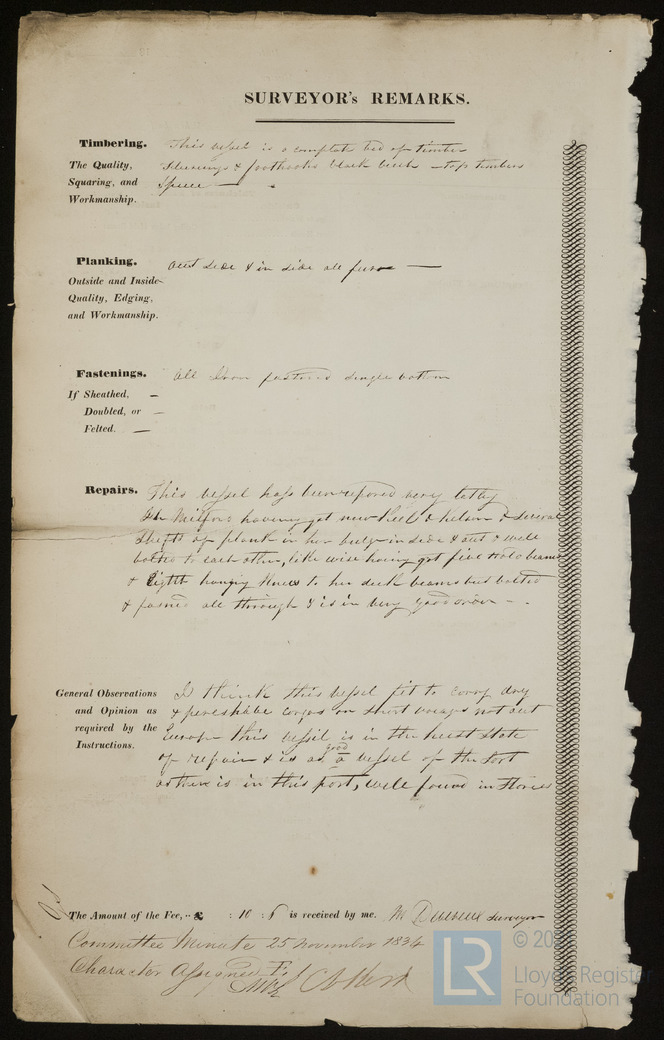 SURVEYOR's REMARKS.
Timbering. This vessel is a complete bed of timber
The Quality, & foothooks black birch - top timbers
Squaring, and Spruce
Workmanship.
Planking. out side & in side all
Outside and Inside
Quality, Edging,
and Workmanship.
Fastenings. all Iron fastened single bottom
If Sheathed, —
Doubled, or —
Felted. —
Repairs. This vessel hass been very
having got new keel & kelson & several
of plank in her in side & out & well
bolted to each other, like wise having got five beams
& Eight hanging knees to her deck beams bolted
& all through & is in very good order -.
General Observations I think this vessel fit to carry dry
and Opinion as & cargos on short not out
required by the Europe this vessel is in the state
Instructions. of repair & is as good a vessel of the sort
as there is in this port, well found in Stores
The Amount of the Fee, .. £ : 10 : 6 is received by me. Surveyor
Committee Minute 25 November 1834
Character Assigned
LR
© 20
Lloyd's Register
Foundation